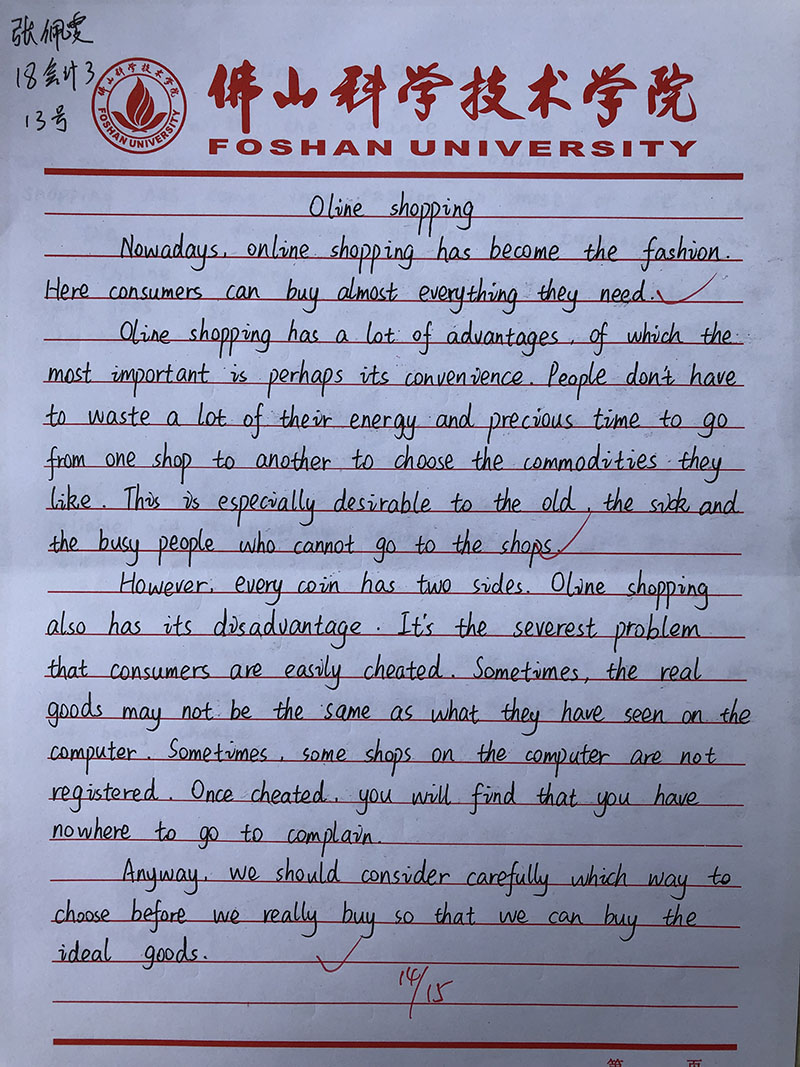 张佩雯
18会计3
13号
佛山科学技术学院
FOSHAN UNIVERSITY
佛山科学技术学院
FOSHAN UNIVERSITY
Oline shopping
Nowadays, online shopping has become the fashion.
Here consumers can buy almost everything they need.
Oline shopping has a lot of advantages, of which the
most important is perhaps its convenience. People don't have
to waste a lot of their energy and precious time to go
from one shop to another to choose the commodities they
like. This is especially desirable to the old, the sick and
the busy people who cannot go to the shops.
However, every coin has two sides. Oline shopping
also has its disadvantage. It's the severest problem
that consumers are easily cheated. Sometimes, the real
goods may not be the same as what they have seen on the
computer. Sometimes, some shops on the computer are not
registered. Once cheated, you will find that you have
nowhere to go to complain.
Anyway, we should consider carefully which way to
choose before we really buy so that we can buy the
ideal goods.
14/15
第 页